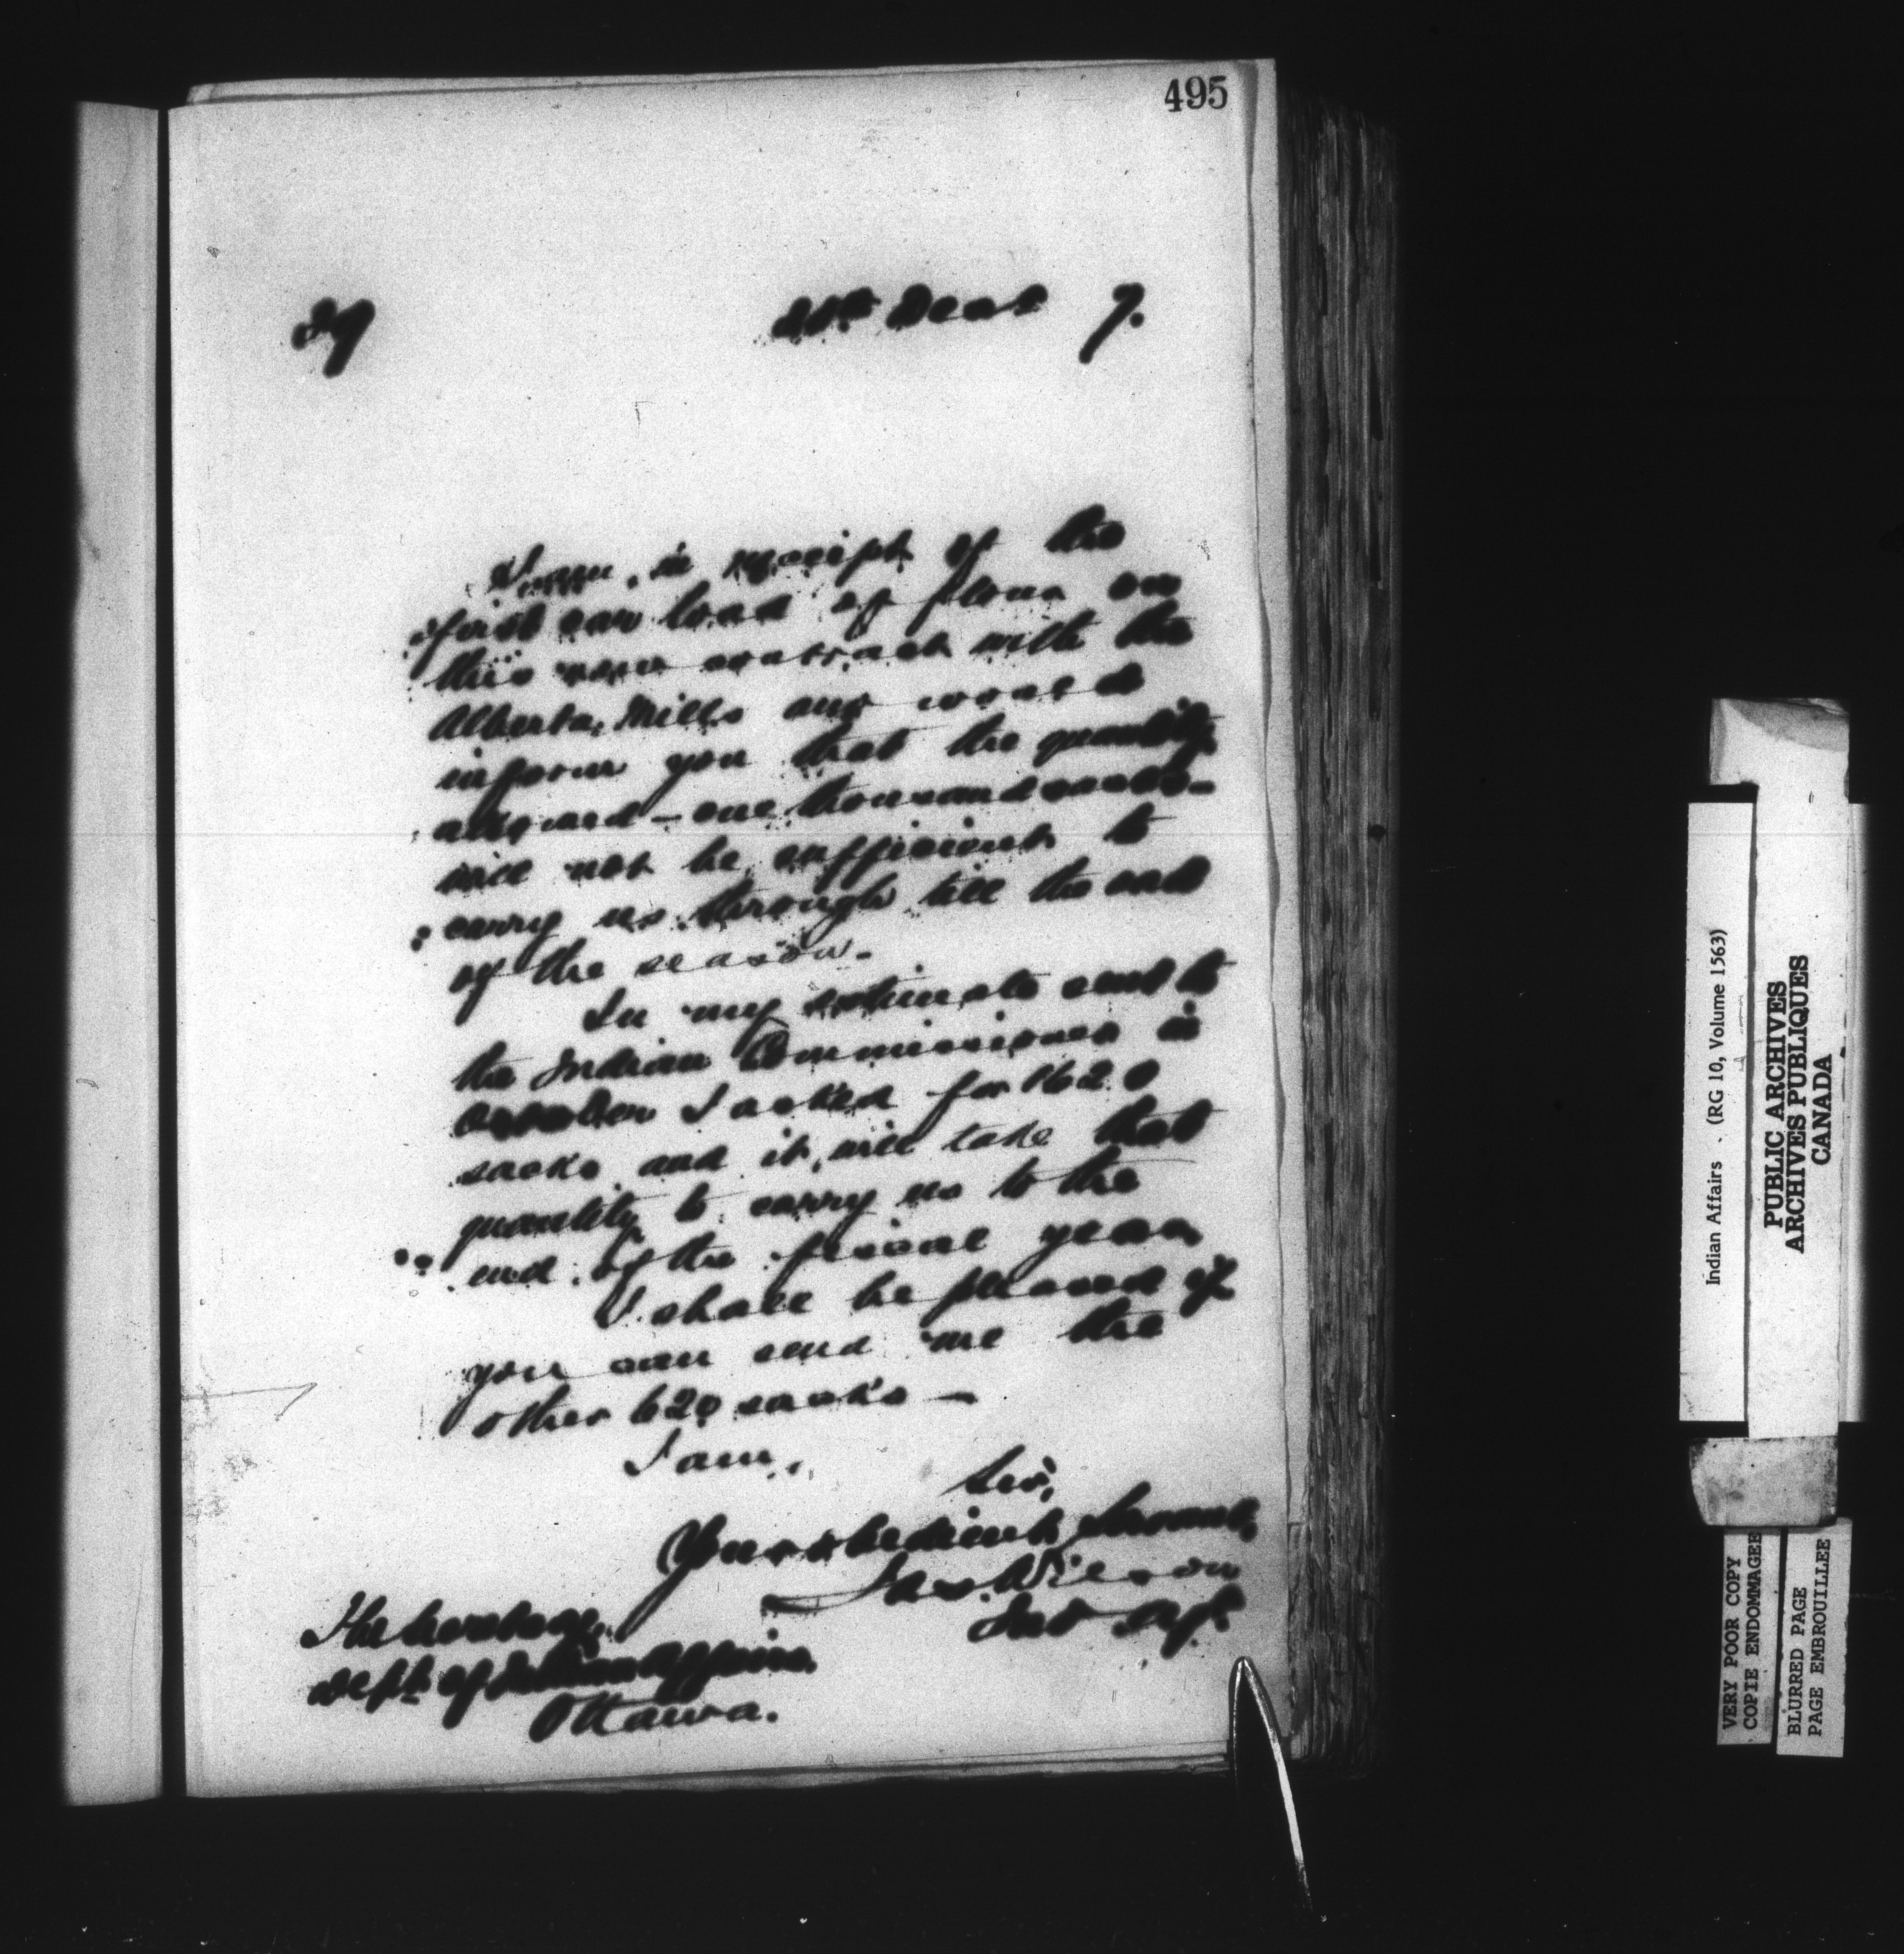 495
39
20th Sept 7.
I am in receipt of the
first car load of flour on
this new contract with the
Alberta Mills and would
inform you that the quantity
allowed - one thousand sacks -
will not be sufficient to
carry us through till the end
of the season.
In my estimate sent to
the Indian Commissioner in
October I asked for 1620
sacks and it will take that
quantity to carry us to the
end of the fiscal year
I shall be pleased if
you can send me the
other 620 sacks —
I am,
Sir,
Your obedient Servant,
Jas. Wilson
Ind Agt.
The Secretary,
Dept. of Indian Affairs.
Ottawa.
Indian Affairs . (RG 10, Volume 1563)
PUBLIC ARCHIVES
ARCHIVES PUBLIQUES
CANADA
VERY POOR COPY
COPIE ENDOMMAGEE
BLURRED PAGE
PAGE EMBROUILLEE